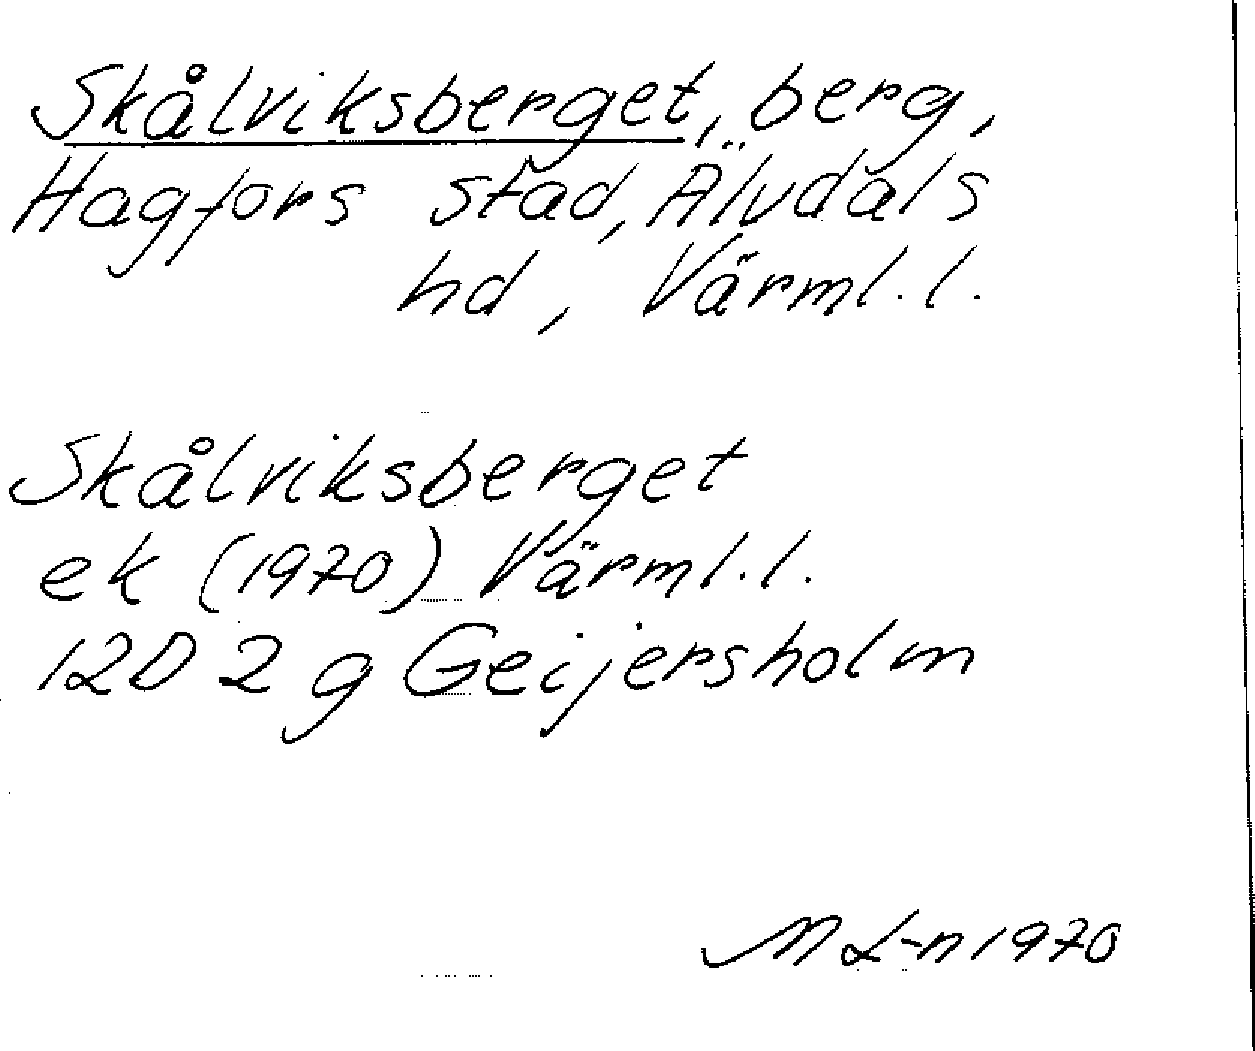 Skålviksberget, berg,
Hagfors stad, Älvdals
hd, Värml. l.
Skålviksberget
ek (1970) Värml. l.
12D 2 g Geijersholm
M L-n 1970